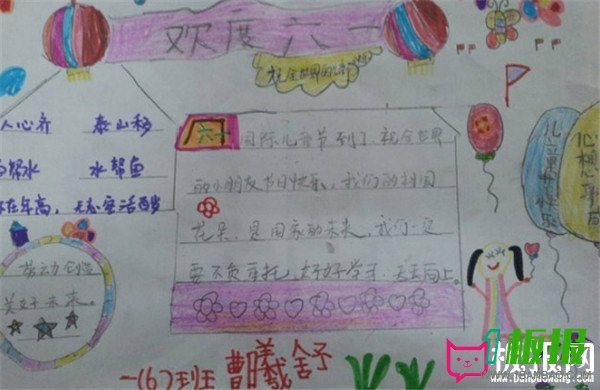 欢度六一
祝全世界
人心齐 泰山移
帮水 水帮鱼
不在年高，无志空活百岁
劳动创造
美好未来。
六一国际儿童节到了，祝全世界
的小朋友节日快乐，我们的祖国
花朵，是国家的未来，我们一定
要不负重托，好好学习，天天向上。
儿童节快乐
心想事成
一(6)班 曹曦舍予
板报网